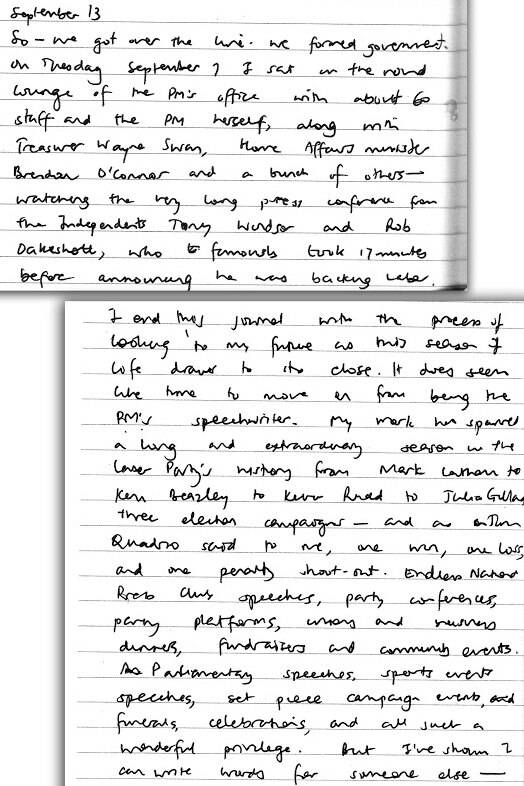 September 13
So – we got over the line. We formed government.
On Tuesday September 7 I sat in the round
lounge of the PM's office with about 60
staff and the PM herself, along with
Treasurer Wayne Swan, Home Affairs minister
Brendan O'Connor and a bunch of others –
watching the very long press conference from
the Independents Tony Windsor and Rob
Oakeshott, who famously took 17 minutes
before announcing he was backing Labor.
I end this journal with the process of
looking to my future as this season of
life draws to its close. It does seem
like time to move on from being the
PM's speechwriter. My work has spanned
a long and extraordinary season in the
Labor Party's history from Mark Latham to
Kim Beazley to Kevin Rudd to Julia Gillard
three election campaigns – and as
Quadrio said to me, one win, one loss,
and one penalty shoot-out. Endless National
Press Club speeches, party conferences,
party platforms, union and business
dinners, fundraisers and community events.
As Parliamentary speeches, sports events
speeches, set piece campaign events, and
funerals, celebrations, and all such a
wonderful privilege. But I've shown I
can write words for someone else –